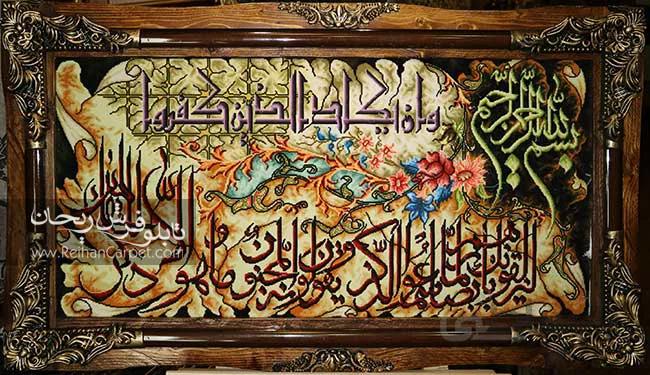 بسم الله الرحمن الرحیم
وان یکاد الذین کفروا
لیزلقونک بابصارهم لما سمعوا الذکر ویقولون انه لمجنون وما هو الا ذکر للعالمین
تابلو فرش ریحان
www.ReihanCarpet.com